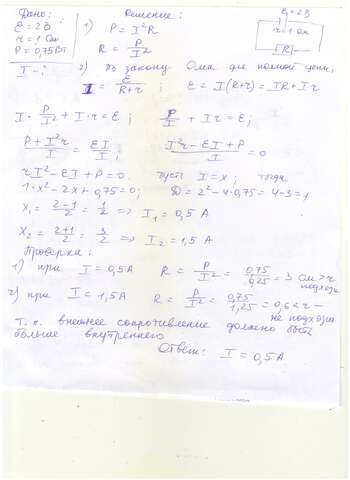 Дано:
Ɛ = 2В
r = 1 Ом
P = 0,75 Вт
I - ?
Решение:
1) P = I²R
R = P/I²
Ɛ = 2В
r = 1 Ом
R
2) По закону Ома для полной цепи,
I = Ɛ/(R+r); Ɛ = I(R+r) = IR + Ir
I · P/I² + I·r = Ɛ; P/I + Ir = Ɛ;
(P + I²r)/I = ƐI/I; (I²r - ƐI + P)/I = 0
rI² - ƐI + P = 0. Пусть I = x; тогда
1·x² - 2x + 0,75 = 0; D = 2² - 4·0,75 = 4 - 3 = 1
X₁ = (2-1)/2 = 1/2 => I₁ = 0,5 А
X₂ = (2+1)/2 = 3/2 => I₂ = 1,5 А
Проверка:
1) при I = 0,5А R = P/I² = 0,75/0,25 = 3 Ом > r
подходит
2) при I = 1,5А R = P/I² = 0,75/1,25 = 0,6 < r -
не подходит
т.к. внешнее сопротивление должно быть
больше внутреннего
Ответ: I = 0,5 А